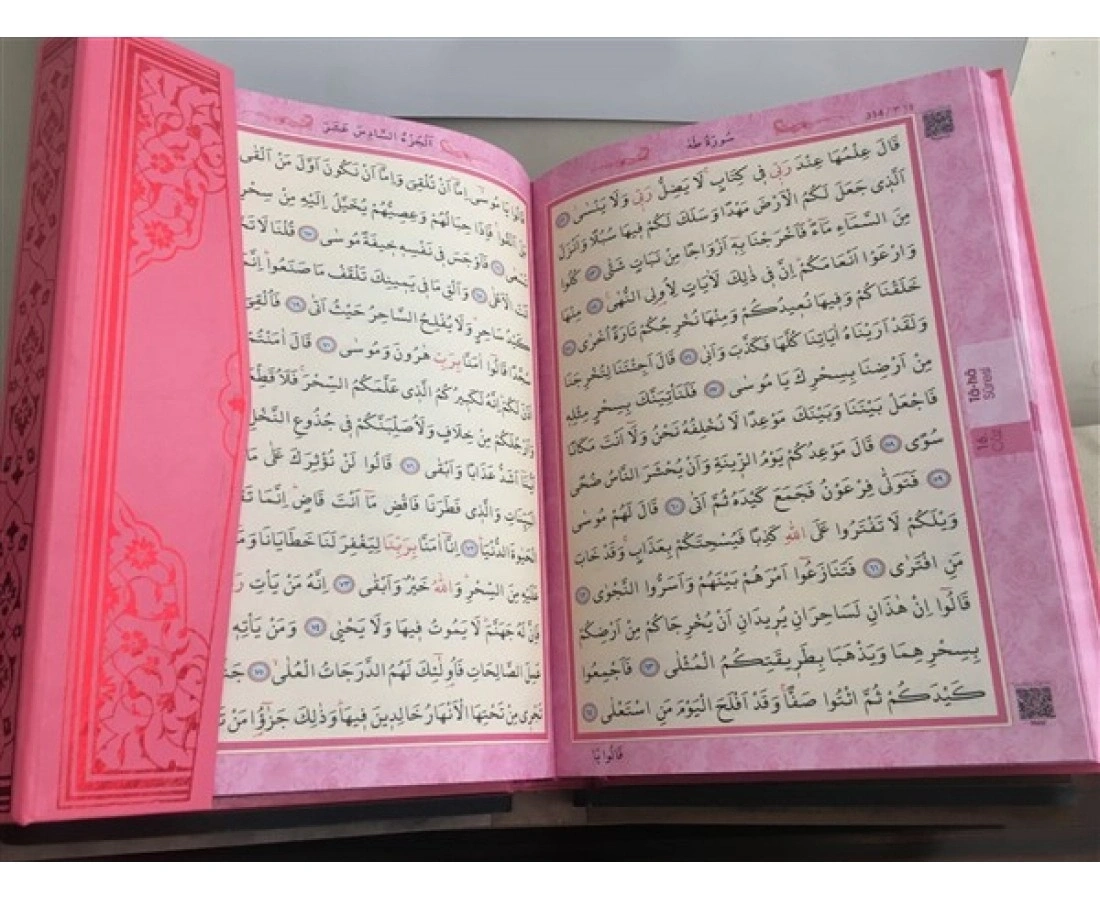 ٣١٤ / 314
سُورَةُ طٰهٰ
قَالَ عِلْمُهَا عِنْدَ رَبّ۪ي ف۪ي كِتَابٍۚ لَا يَضِلُّ رَبّ۪ي وَلَا يَنْسٰىۘ ﴿٥٢﴾
اَلَّذ۪ي جَعَلَ لَكُمُ الْاَرْضَ مَهْدًا وَسَلَكَ لَكُمْ ف۪يهَا سُبُلًا وَاَنْزَلَ
مِنَ السَّمَٓاءِ مَٓاءًۜ فَاَخْرَجْنَا بِه۪ٓ اَزْوَاجًا مِنْ نَبَاتٍ شَتّٰى ﴿٥٣﴾ كُلُوا
وَارْعَوْا اَنْعَامَكُمْۜ اِنَّ ف۪ي ذٰلِكَ لَاٰيَاتٍ لِاُو۬لِي النُّهٰى۟ ﴿٥٤﴾ مِنْهَا
خَلَقْنَاكُمْ وَف۪يهَا نُع۪يدُكُمْ وَمِنْهَا نُخْرِجُكُمْ تَارَةً اُخْرٰى ﴿٥٥﴾
وَلَقَدْ اَرَيْنَاهُ اٰيَاتِنَا كُلَّهَا فَكَذَّبَ وَاَبٰى ﴿٥٦﴾ قَالَ اَجِئْتَنَا لِتُخْرِجَنَا
مِنْ اَرْضِنَا بِسِحْرِكَ يَا مُوسٰى ﴿٥٧﴾ فَلَنَأْتِيَنَّكَ بِسِحْرٍ مِثْلِه۪
فَاجْعَلْ بَيْنَنَا وَبَيْنَكَ مَوْعِدًا لَا نُخْلِفُهُ نَحْنُ وَلَٓا اَنْتَ مَكَانًا
سُوًى ﴿٥٨﴾ قَالَ مَوْعِدُكُمْ يَوْمُ الزّ۪ينَةِ وَاَنْ يُحْشَرَ النَّاسُ ضُحًى
﴿٥٩﴾ فَتَوَلّٰى فِرْعَوْنُ فَجَمَعَ كَيْدَهُ ثُمَّ اَتٰى ﴿٦٠﴾ قَالَ لَهُمْ مُوسٰى
وَيْلَكُمْ لَا تَفْتَرُوا عَلَى اللّٰهِ كَذِبًا فَيُسْحِتَكُمْ بِعَذَابٍۚ وَقَدْ خَابَ
مَنِ افْتَرٰى ﴿٦١﴾ فَتَنَازَعُٓوا اَمْرَهُمْ بَيْنَهُمْ وَاَسَرُّوا النَّجْوٰى ﴿٦٢﴾
قَالُٓوا اِنْ هٰذَانِ لَسَاحِرَانِ يُر۪يدَانِ اَنْ يُخْرِجَاكُمْ مِنْ اَرْضِكُمْ
بِسِحْرِهِمَا وَيَذْهَبَا بِطَر۪يقَتِكُمُ الْمُثْلٰى ﴿٦٣﴾ فَاَجْمِعُوا
كَيْدَكُمْ ثُمَّ ائْتُوا صَفًّاۚ وَقَدْ اَفْلَحَ الْيَوْمَ مَنِ اسْتَعْلٰى ﴿٦٤﴾
قَالُوا يَا
Tâ-hâ
Sûresi
16.
Cüz
اَلْجُزْءُ السَّادِسَ عَشَرَ
قَالُوا يَا مُوسٰٓى اِمَّٓا اَنْ تُلْقِيَ وَاِمَّٓا اَنْ نَكُونَ اَوَّلَ مَنْ اَلْقٰى
بَلْ اَلْقُواۚ فَاِذَا حِبَالُهُمْ وَعِصِيُّهُمْ يُخَيَّلُ اِلَيْهِ مِنْ سِحْرِ
تَسْعٰى ﴿٦٦﴾ فَاَوْجَسَ ف۪ي نَفْسِه۪ خ۪يفَةً مُوسٰى ﴿٦٧﴾ قُلْنَا لَا تَخَ
اَنْتَ الْاَعْلٰى ﴿٦٨﴾ وَاَلْقِ مَا ف۪ي يَم۪ينِكَ تَلْقَفْ مَا صَنَعُواۜ اِنَّمَ
كَيْدُ سَاحِرٍۜ وَلَا يُفْلِحُ السَّاحِرُ حَيْثُ اَتٰى ﴿٦٩﴾ فَاُلْقِيَ
سُجَّدًا قَالُٓوا اٰمَنَّا بِرَبِّ هٰرُونَ وَمُوسٰى ﴿٧٠﴾ قَالَ اٰمَنْتُمْ
اَنْ اٰذَنَ لَكُمْۜ اِنَّهُ لَكَب۪يرُكُمُ الَّذ۪ي عَلَّمَكُمُ السِّحْرَۚ فَلَاُقَطِّعَ
وَاَرْجُلَكُمْ مِنْ خِلَافٍ وَلَاُصَلِّبَنَّكُمْ ف۪ي جُذُوعِ النَّخْلِ
اَيُّنَٓا اَشَدُّ عَذَابًا وَاَبْقٰى ﴿٧١﴾ قَالُوا لَنْ نُؤْثِرَكَ عَلٰى مَا
الْبَيِّنَاتِ وَالَّذ۪ي فَطَرَنَا فَاقْضِ مَٓا اَنْتَ قَاضٍۜ اِنَّمَا تَقْ
الْحَيٰوةَ الدُّنْيَاۜ ﴿٧٢﴾ اِنَّٓا اٰمَنَّا بِرَبِّنَا لِيَغْفِرَ لَنَا خَطَايَانَا وَمَٓ
عَلَيْهِ مِنَ السِّحْرِۜ وَاللّٰهُ خَيْرٌ وَاَبْقٰى ﴿٧٣﴾ اِنَّهُ مَنْ يَأْتِ رَ
فَاِنَّ لَهُ جَهَنَّمَۜ لَا يَمُوتُ ف۪يهَا وَلَا يَحْيٰى ﴿٧٤﴾ وَمَنْ يَأْتِه۪
عَمِلَ الصَّالِحَاتِ فَاُو۬لٰٓئِكَ لَهُمُ الدَّرَجَاتُ الْعُلٰىۙ ﴿٧٥﴾ جَنَّ
تَجْر۪ي مِنْ تَحْتِهَا الْاَنْهَارُ خَالِد۪ينَ ف۪يهَاۜ وَذٰلِكَ جَزٰٓؤُا مَنْ تَ